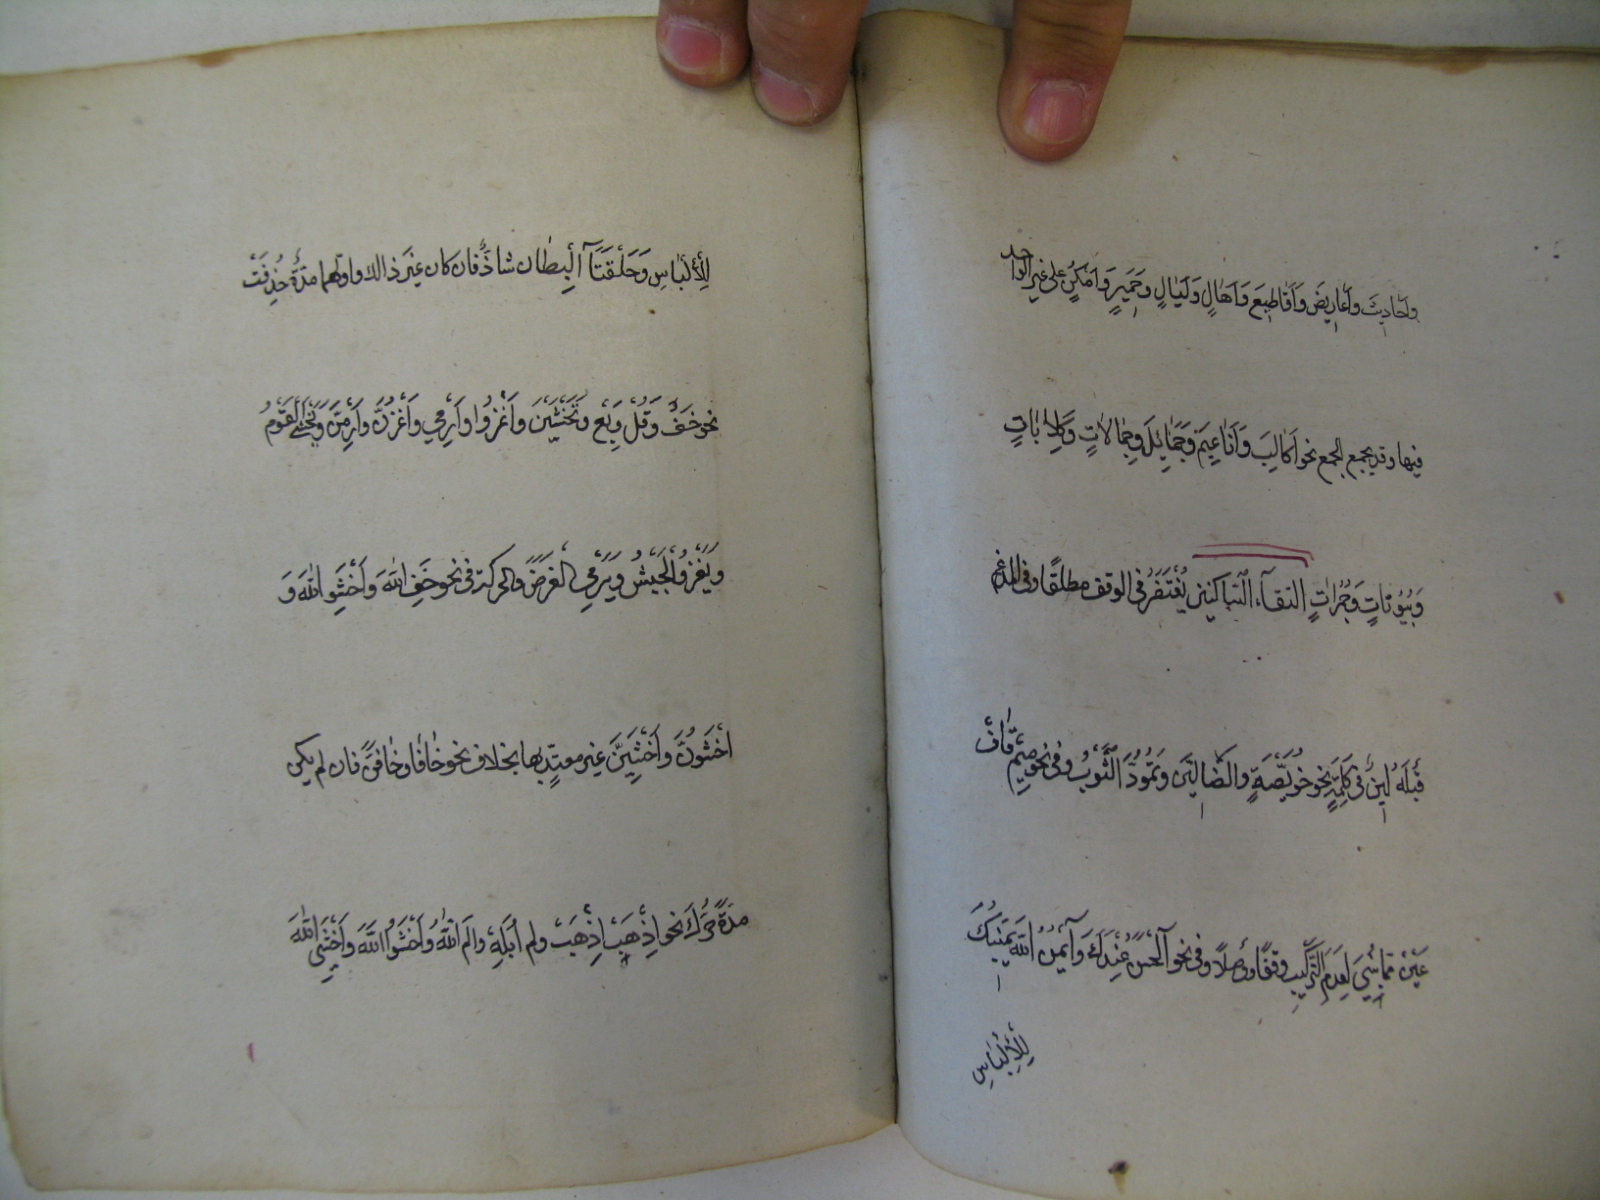 وَاَحَادِيثَ وَاَعَارِيضَ وَاَقَاطِيعَ وَاَهَالٍ وَلَيَالٍ وَحَمِيرٍ وَاَمْكُنٍ عَلَى غَيْرِ الْوَاحِدِ
فيها وقد يجمع الجمع نحو اَكَالِبَ وَاَنَاعِيمَ وَجَمَائِلَ وَجِمَالَاتٍ وَكِلَابَاتٍ
وَبُيُوتَاتٍ وَحُمُرَاتٍ التقآء الساكنين يُغْتَفَرُ فى الوقف مطلقًا وفى المدغم
قَبْلَهُ لِينٌ فى كَلِمَةٍ نحو خُوَيْصَّةٍ والضَّالِّينَ وَتُمُودَّ الثَّوْبُ وفى نحو مِيمْ قَافْ
عَيْنْ مما بُنِيَ لِعَدَمِ التَّرْكِيبِ وقفًا ووصلًا وفى نحو آلْحَسَنُ عِنْدَكَ وَآيْمُنُ اللهِ يَمِينُكَ
لِلْاِلْبَاسِ
لِلْاِلْبَاسِ وَحَلْقَتَا الْبِطَانِ شَاذٌّ فان كان غَيْرَ ذالك واولهما مَدَّةٌ حُذِفَتْ
نحو خَفْ وَقُلْ وَبِعْ وَتَخْشَيْنَ وَاُغْزُوا وَاِرْمِي وَاُغْزُنَّ وَاِرْمِنَّ وَيَخْشَى الْقَوْمُ
وَيَغْزُو الْجَيْشُ وَيَرْمِي الْغَرَضَ والحركة فى نحو خَفِ اللهَ وَاخْشَوُا اللهَ وَ
اخْشَوُنَّ وَاخْشَيِنَّ غير معتدٍّ بها بخلاف نحو خَافَا وخَافَنَّ فان لم يكن
مَدَّةً حُرِّكَ نحو اِذْهَبْ اِذْهَبْ ولم اُبَلِهْ والم اللهُ وَاخْشَوُا اللهَ وَاخْشَىِ اللهَ